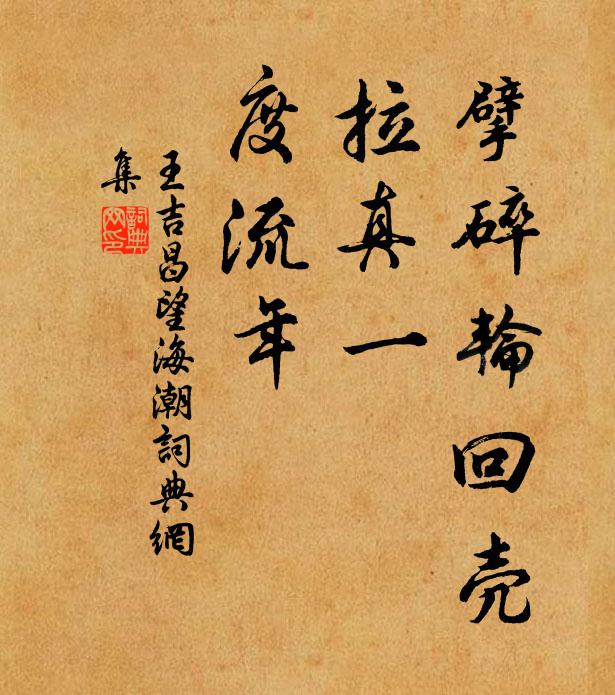 擘碎輪回壳
拉真一
度流年
王吉昌望海潮詞典網
集
詞典網印